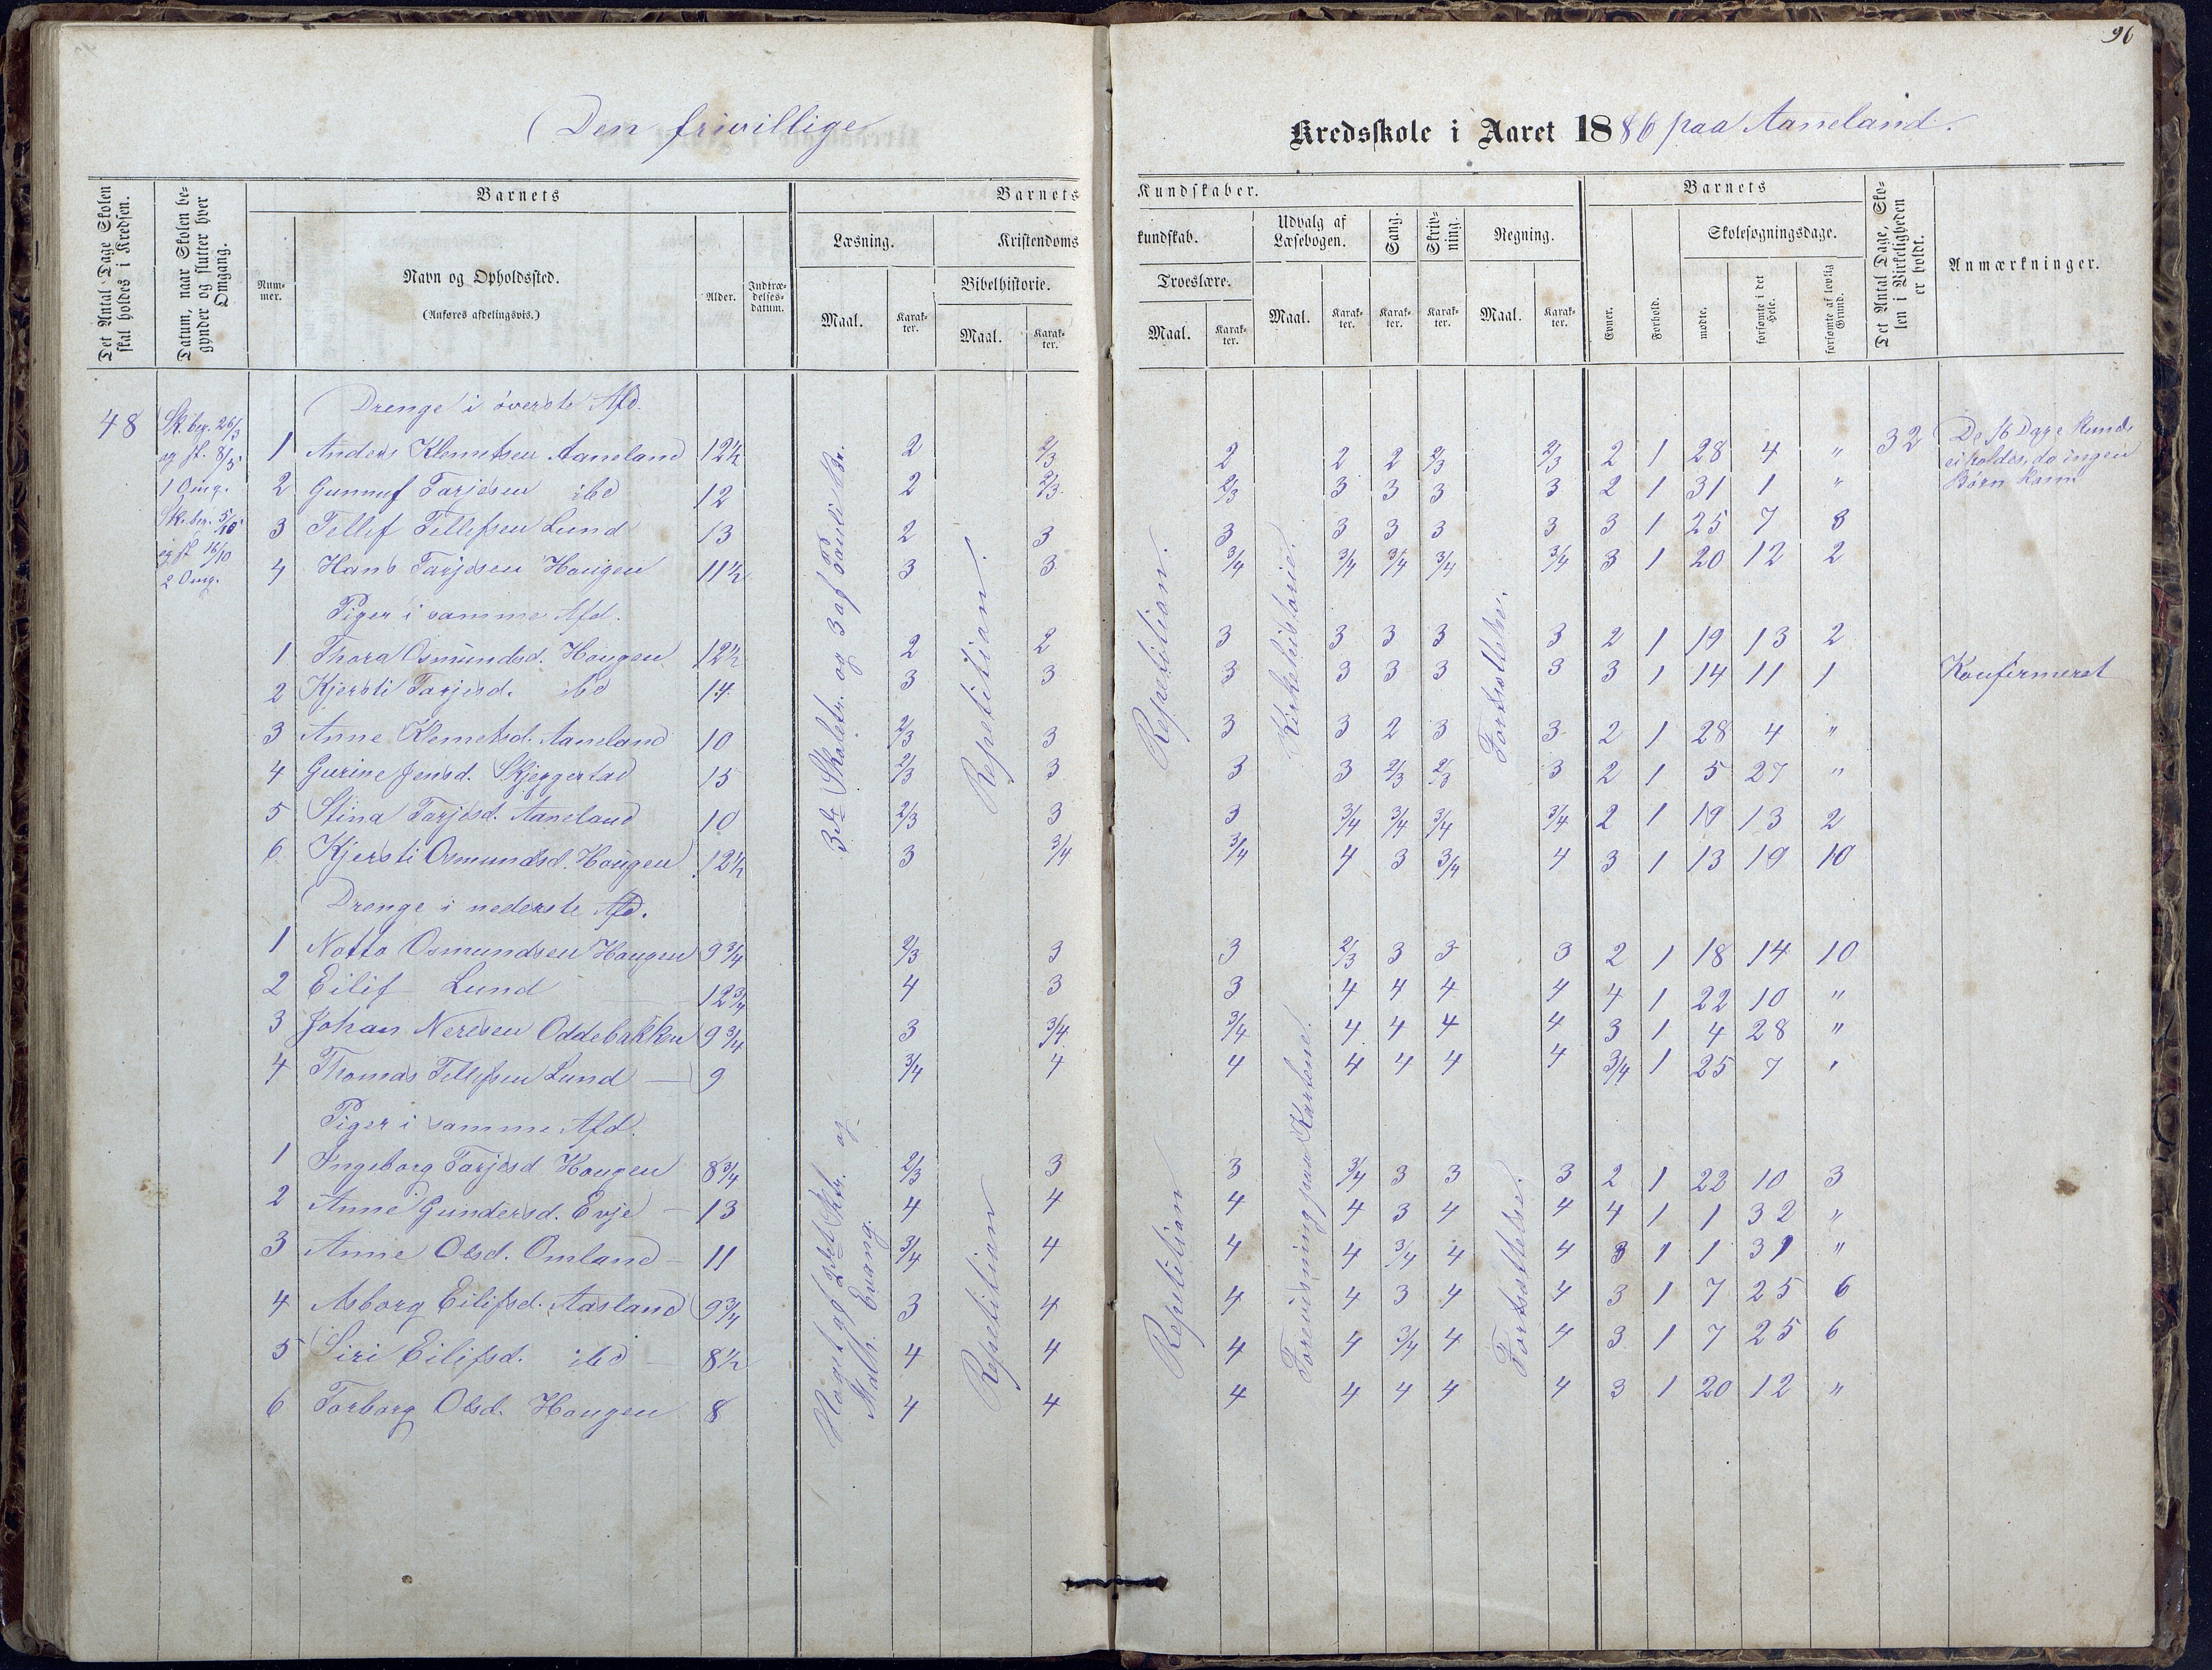 96
Den frivillige Kredsskole i Aaret 1886 paa Aaneland.
Det Antal Dage Skolen skal holdes i Kredsen.
Datum, naar Skolen begynder og slutter hver Omgang.
Barnets
Nummer.
Navn og Opholdssted.
(Anføres afdelingsvis.)
Alder.
Indtrædelsesdatum.
Barnets Kundskaber.
Læsning.
Maal.
Karakter.
Kristendomskundskab.
Bibelhistorie.
Maal.
Karakter.
Troeslære.
Maal.
Karakter.
Udvalg af Læsebogen.
Maal.
Karakter.
Sang.
Karakter.
Skrivning.
Karakter.
Regning.
Maal.
Karakter.
Barnets
Evner.
Forhold.
Skolesøgningsdage.
mødte.
forsømte i det Hele.
forsømte af lovlig Grund.
Det Antal Dage, Skolen i Virkeligheden er holdt.
Anmærkninger.
48
Sk. beg. 26/3
og sl. 8/5
1 Omg.
Sk. beg. 5/10
og sl. 16/10
2 Omg.
Drenge i øverste Afd.
1 Anders Klemetsen Aaneland 12½ 2 2/3 2 2 2 2/3 2/3 2 1 28 4 " 32
2 Gunnuf Tarjesen ibd 12 2 2/3 2/3 3 3 3 3 2 1 31 1 "
3 Tellef Tellefsen Lund 13 2 3 3 3 3 3 3 3 1 25 7 8
4 Hans Tarjesen Hougen 11½ 3 3 3/4 3/4 3/4 3/4 3/4 3 1 20 12 2
De 16 Dage kunde
ei holdes, da ingen
Børn kom
Piger i samme Afd.
1 Thora Osmundsd. Hougen 12½ 2 2 3 3 3 3 3 2 1 19 13 2
2 Kjersti Tarjesd. ibd 14 3 3 3 3 3 3 3 3 1 14 11 1 Konfirmeret
3 Anne Klemetsd. Aaneland 10 2/3 3 3 3 2 3 3 2 1 28 4 "
4 Gurine Jensd. Skjeggestad 15 2/3 3 3 3 2/3 2/3 3 2 1 5 27 "
5 Stina Tarjesd. Aaneland 10 2/3 3 3 3/4 3/4 3/4 3/4 2 1 19 13 2
6 Kjersti Osmundsd. Hougen 12½ 3 3/4 3/4 4 3 3/4 4 3 1 13 19 10
3die Skoletr. og 3 af Pauli Br.
Repetition.
Repetition.
Kirkehistorie.
Fortsættelse.
Drenge i nederste Afd.
1 Notto Osmundsen Hougen 9 3/4 2/3 3 3 2/3 3 3 3 2 1 18 14 10
2 Eilif Lund 12 3/4 4 3 3 4 4 4 4 4 1 22 10 "
3 Johan Neresen Oddebakken 9 3/4 3 3/4 3/4 4 4 4 4 3 1 4 28 "
4 Thomas Tellefsen Lund 9 3/4 4 4 4 4 4 4 3/4 1 25 7 "
Piger i samme Afd.
1 Ingeborg Tarjesd Hougen 8 3/4 2/3 3 3 3/4 3 3 3 2 1 22 10 3
2 Anne Gundersd. Evje 13 4 4 4 4 3 4 4 4 1 1 32 "
3 Anne Olsd. Omland 11 3/4 4 4 4 3/4 4 4 3 1 1 31 "
4 Asborg Eilifsd. Aasland 9 3/4 3 4 4 4 3 4 4 3 1 7 25 6
5 Siri Eilifsd. ibd 8½ 4 4 4 4 3/4 4 4 3 1 7 25 6
6 Torborg Olsd. Hougen 8 4 4 4 4 4 4 4 3 1 20 12 "
Noget af 2det Sktr. og
Math. Evang.
Repetition
Repetition
Forevisning paa Kartene.
Fortsættelse.